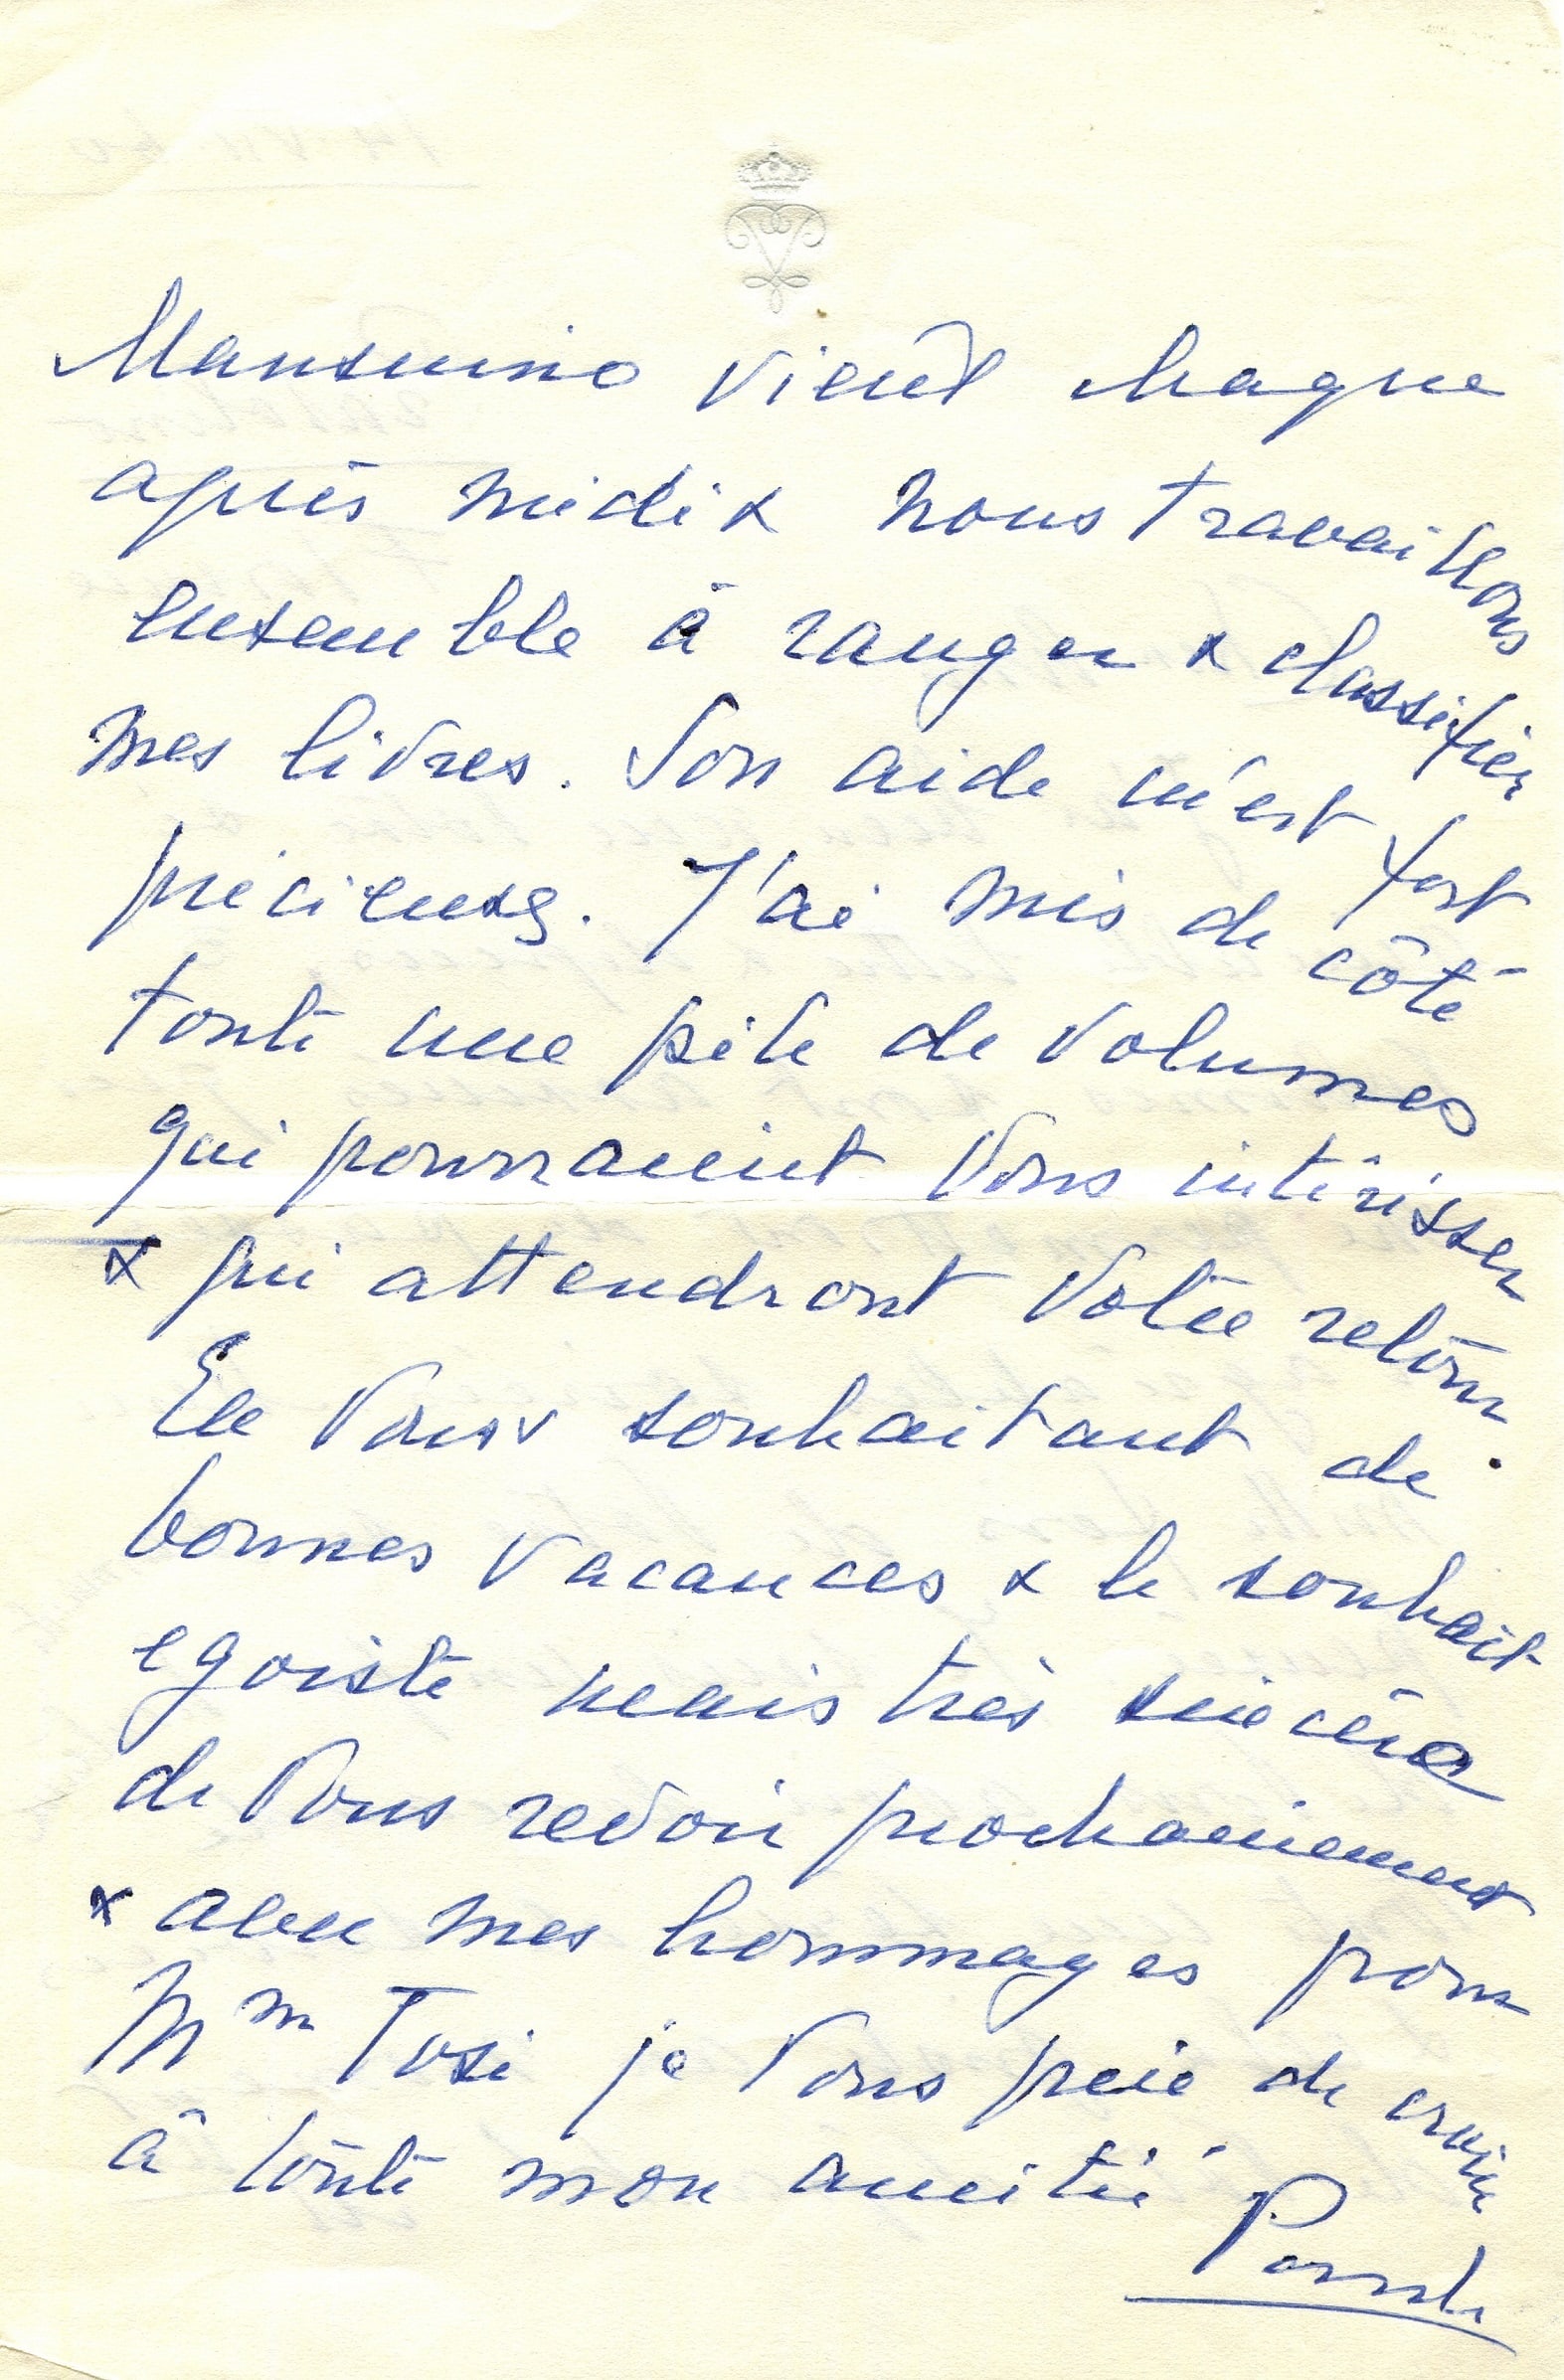 Mansuino vient chaque
après midi & nous travaillons
ensemble à ranger & classifier
mes livres. Son aide m'est fort
précieuse. J'ai mis de côté
toute une pile de volumes
qui pourraient Vous intéresser
& qui attendront Votre retour.
En Vous souhaitant de
bonnes vacances & le souhait
egoiste mais très sincère
de Vous revoir prochainement
& avec mes hommages pour
Mm Tosi je Vous prie de croire
à toute mon amitié